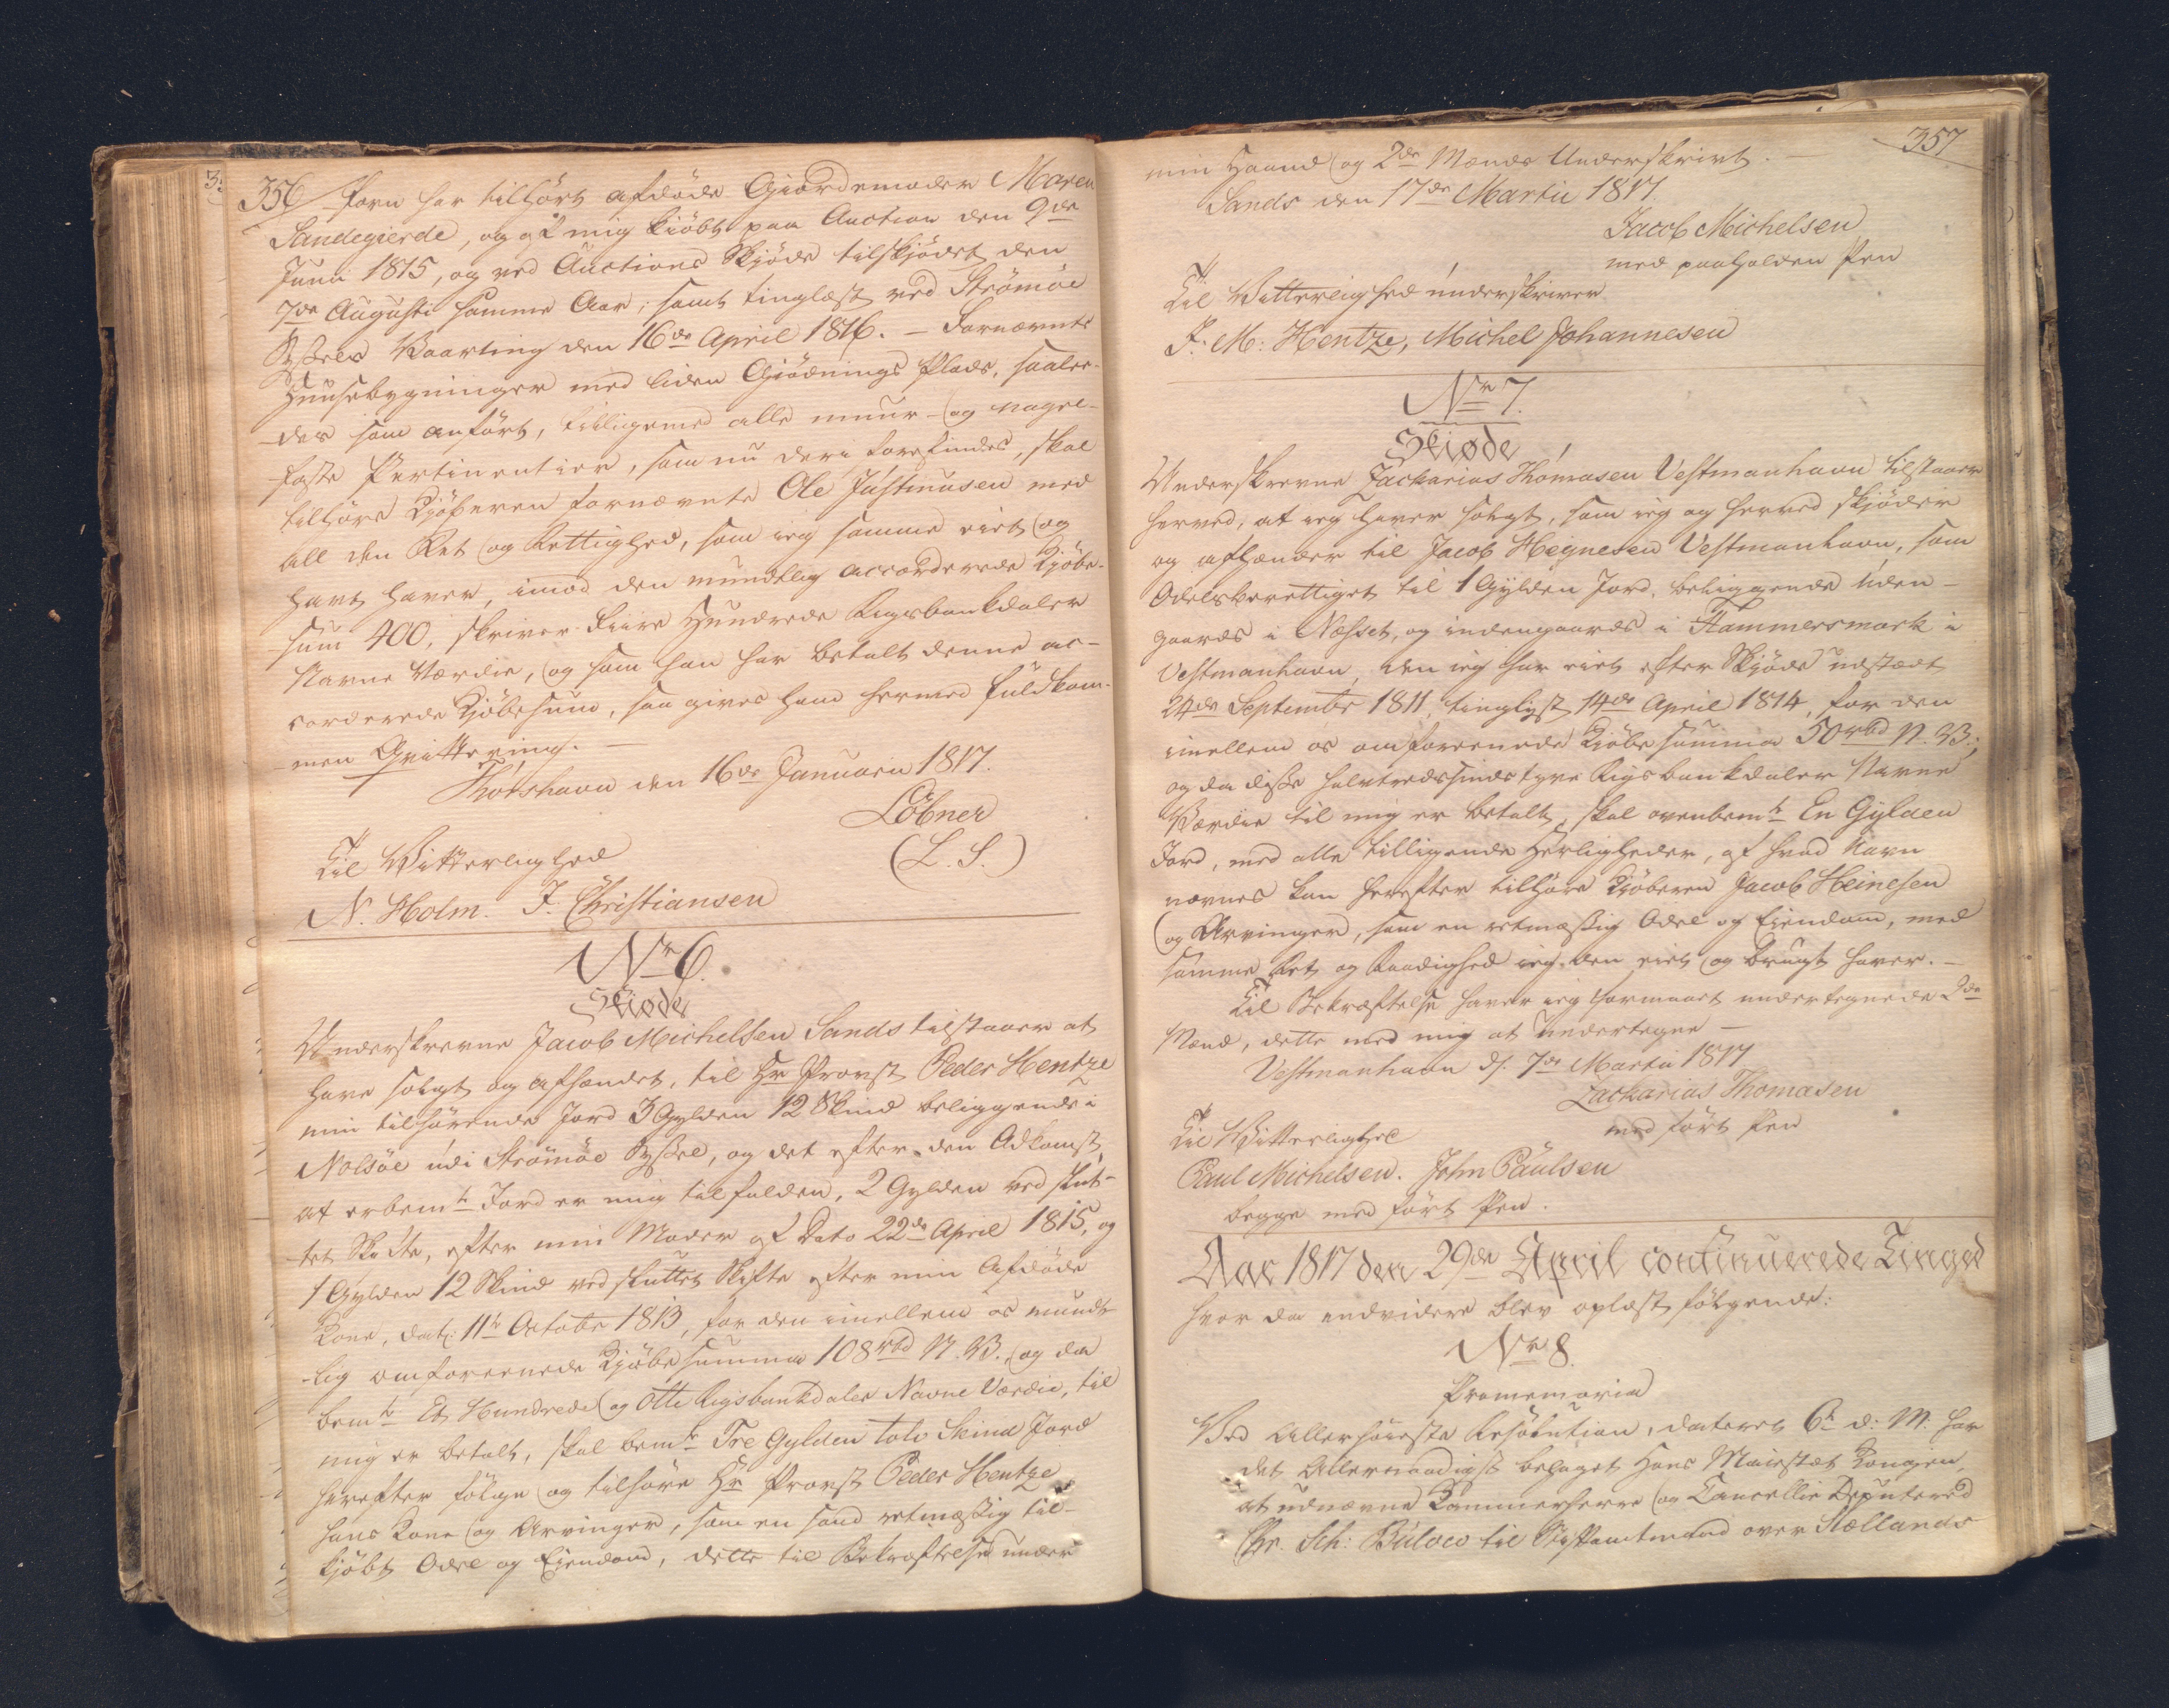 356
forn har tilhørt afdøde Gjordemoder Maren
Sandegierde, og af mig kiöbt paa Auction den 9de
Junii 1815, og ved Auctions Skjöde tilskjödet den
7de Augusti samme Aar, samt tinglæst ved Strömöe
Syssels Vaarting den 16de April 1816. – Fornævnte
Huusebygninger med liden Gjödnings Plads, saale-
des som anfört, tilligemed alle muur- og nagel-
faste Pertinentier, som nu deri forefindes, skal
tilhöre Kjöberen fornævnte Ole Justinusen med
all den Ret og Rettighed, som ieg samme eiet og
havt haver, imod den mundtlig accorderede Kjöbe-
sum 400, skriver Fiire Hundrede Rigsbankdaler
Navne Værdie, og som han har betalt denne ac-
corderede Kjöbesum, saa gives ham hermed fuldkom-
men Qvittering. –
Thorshavn den 16de Januarii 1817.
Löbner
(L. S.)
Til Vitterlighed
N. Holm. J. Christiansen
No 6.
Skiöde
Underskrevne Jacob Michelsen Sands tilstaaer at
have solgt og afhændet, til Hr Provst Peder Hentze
min tilhörende Jord 3 Gylden 12 Skind beliggende i
Nolsöe udi Strömöe Syssel, og det efter den Adkomst,
at erbemte Jord er mig tilfalden, 2 Gylden ved slut-
tet Skifte, efter min Moder af Dato 22de April 1815, og
1 Gylden 12 Skind ved sluttet Skifte efter min Afdöde
Kone, dat: 11te October 1813, for den imellem os mundt-
lig omforeenede Kjöbesumma 108 rbd N. V. og da
bemte Et Hundrede og Otte Rigsbankdaler Navne Værdie, til
mig er betalt, skal bemte Tre Gylden tolv Skind Jord
herefter fölge og tilhöre Hr Provst Peder Hentze
hans Kone og Arvinger, som en sand retmæssig til-
kjöbt Odel og Eiendom, dette til Bekræftelse under
357
min Haand og 2de Mænds Underskrivt. –
Sands den 17de Martii 1817.
Jacob Michelsen
med paaholden Pen
Til Vitterlighed underskriver
J. M: Hentze, Michel Johannesen
No 7.
Skiøde
Underskrevne Zacharias Thomasen Vestmanhavn tilstaaer
herved, at ieg haver solgt, som ieg og herved skjöder
og afhænder til Jacob Heynesen Vestmanhavn, som
Odelsberettiget til 1 Gylden Jord, beliggende uden-
gaards i Næsset, og indengaards i Hammersmark i
Vestmanhavn, den ieg har eiet efter Skjöde udstædt
24de September 1811, tinglyst 14de April 1814, for den
imellem os omforeenede Kjöbesumma 50 rbd N. V.;
og da disse halvtredssindstyve Rigsbankdaler Navne
Værdie til mig er betalt, skal ovenbemte En Gylden
Jord, med alle tilligende Herligheder, af hvad Navn
nævnes kan herefter tilhöre Kjöberen Jacob Heinesen
og Arvinger, som en retmæssig Odel og Eiendom, med
samme Ret og Raadighed ieg den eiet og brugt haver. –
Til Bekræftelse haver ieg formaaet undertegnede 2de
Mænd, dette med mig at undertegne –
Vestmanhavn d. 7de Martii 1817
Zacharias Thomasen
med fört Pen
Til Vitterlighed
Paul Michelsen. John Paulsen
begge med fört Pen.
Aar 1817 den 29de April continuerede Tinged
hvor da endvidere blev oplæst fölgende:
No 8.
Promemoria
Ved Allerhöieste Resolution, dateret 6te d: M. har
det Allernaadigst behaget Hans Maiestæt Kongen,
at udnævne Kammerherre og Cancellie Deputered
Chr. Sch: Bülow til Stiftamtmand over Siællands